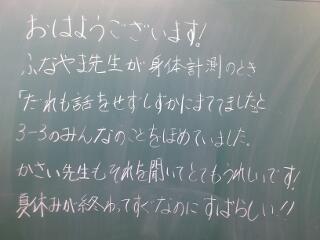 おはようございます!
ふなやま先生が身体計測のとき
「だれも話をせずしずかにまてました」と
3-3のみんなのことをほめていました。
かさい先生もそれを聞いてとてもうれしいです!
夏休みが終わってすぐなのにすばらしい!!